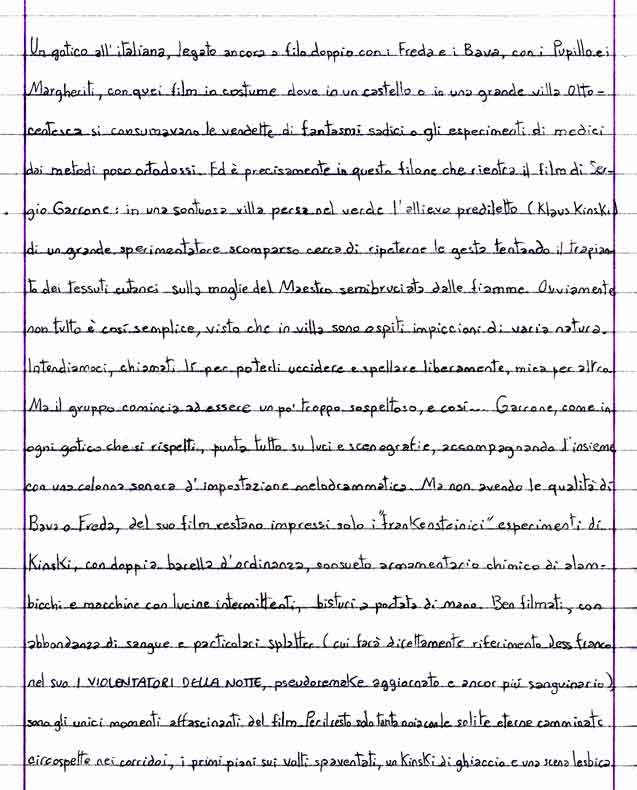 Un gotico all'italiana, legato ancora a filo doppio con i Freda e i Bava, con i Pupillo e i
Margheriti, con quei film in costume dove in un castello o in una grande villa Otto-
centesca si consumavano le vendette di fantasmi sadici o gli esperimenti di medici
dai metodi poco ortodossi. Ed è precisamente in questo filone che rientra il film di Ser-
gio Garrone: in una sontuosa villa persa nel verde l'allievo prediletto (Klaus Kinski)
di un grande sperimentatore scomparso cerca di ripeterne le gesta tentando il trapian-
to dei tessuti cutanei sulla moglie del Maestro semibruciata dalle fiamme. Ovviamente
non tutto è così semplice, visto che in villa sono ospiti impiccioni di varia natura.
Intendiamoci, chiamati lì per poterli uccidere e spellare liberamente, mica per altro.
Ma il gruppo comincia ad essere un po' troppo sospettoso, e così... Garrone, come in
ogni gotico che si rispetti, punta tutto su luci e scenografie, accompagnando l'insieme
con una colonna sonora d'impostazione melodrammatica. Ma non avendo le qualità di
Bava o Freda, del suo film restano impressi solo i "frankensteinici" esperimenti di
Kinski, con doppia barella d'ordinanza, consueto armamentario chimico di alam-
bicchi e macchine con lucine intermittenti, bisturi a portata di mano. Ben filmati, con
abbondanza di sangue e particolari splatter (cui farà direttamente riferimento Jess Franco
nel suo I VIOLENTATORI DELLA NOTTE, pseudoremake aggiornato e ancor più sanguinario),
sono gli unici momenti affascinanti del film. Per il resto solo tanta noia con le solite eterne camminate
circospette nei corridoi, i primi piani sui volti spaventati, un Kinski di ghiaccio e una scena lesbica